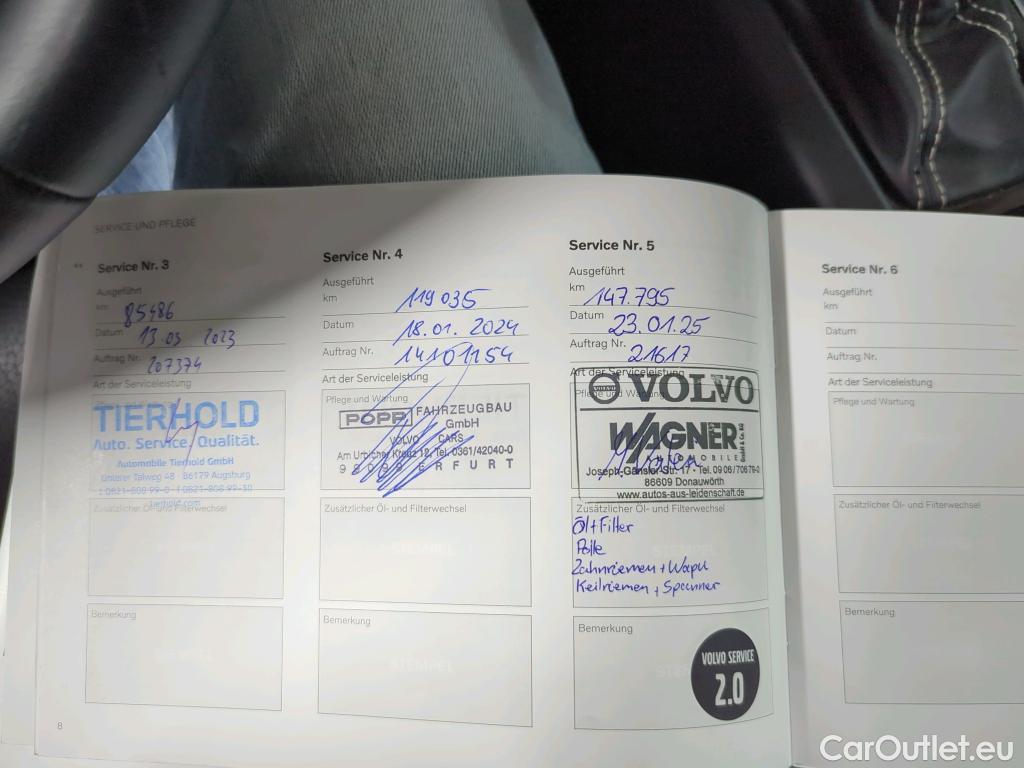 SERVICE UND PFLEGE
Service Nr. 3
Ausgeführt
km 85486
Datum 13.09 2023
Auftrag Nr. 207374
Art der Serviceleistung
TIERHOLD
Auto. Service. Qualität.
Automobile Tierhold GmbH
Unterer Talweg 48 · 86179 Augsburg
t 0821-808 99-0 · f 0821-808 99-30
tierhold.com
Zusätzlicher Öl- und Filterwechsel
Bemerkung
8
Service Nr. 4
Ausgeführt
km 119 035
Datum 18.01. 2024
Auftrag Nr. 14101154
Art der Serviceleistung
Pflege und Wartung
POPP FAHRZEUGBAU
GmbH
VOLVO CARS
Am Urbicher Kreuz 12, Tel. 0361/42040-0
99099 ERFURT
Zusätzlicher Öl- und Filterwechsel
STEMPEL
Bemerkung
STEMPEL
Service Nr. 5
Ausgeführt
km 147.795
Datum 23.01.25
Auftrag Nr. 21617
Art der Serviceleistung
Pflege und Wartung
VOLVO
WAGNER
AUTOMOBILE
GmbH & Co. KG
Joseph-Gänsler-Str. 17 · Tel. 09 06/706 79-0
86609 Donauwörth
www.autos-aus-leidenschaft.de
Zusätzlicher Öl- und Filterwechsel
Öl+Filter
Polle
Zahnriemen + Wapu
Keilriemen + Spanner
STEMPEL
Bemerkung
VOLVO SERVICE
2.0
Service Nr. 6
Ausgeführt
km
Datum
Auftrag Nr.
Art der Serviceleistung
Pflege und Wartung
Zusätzlicher Öl- und Filterwechsel
Bemerkung
CarOutlet.eu